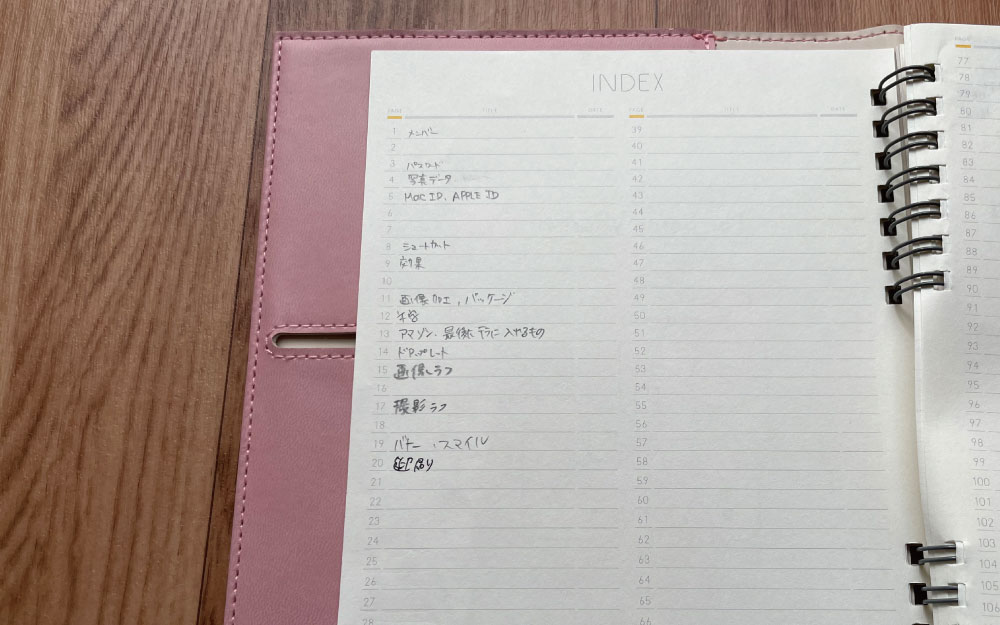 INDEX
PAGE TITLE DATE PAGE TITLE DATE PAGE
1 メンバー 39 77
2 40 78
3 パスワード 41 79
4 写真データ 42 80
5 MAC ID, APPLE ID 43 81
6 44 82
7 45 83
8 ショートカット 46 84
9 効果 47 85
10 48 86
11 画像加工, パッケージ 49 87
12 50 88
13 アマゾン. 最後に 入れるもの 51 89
14 52 90
15 画像ラフ 53 91
16 54 92
17 撮影ラフ 55 93
18 56 94
19 バナー スマイル 57 95
20 58 96
21 59 97
22 60 98
23 61 99
24 62 100
25 63 101
26 64 102
27 65 103
28 66 104
105
106